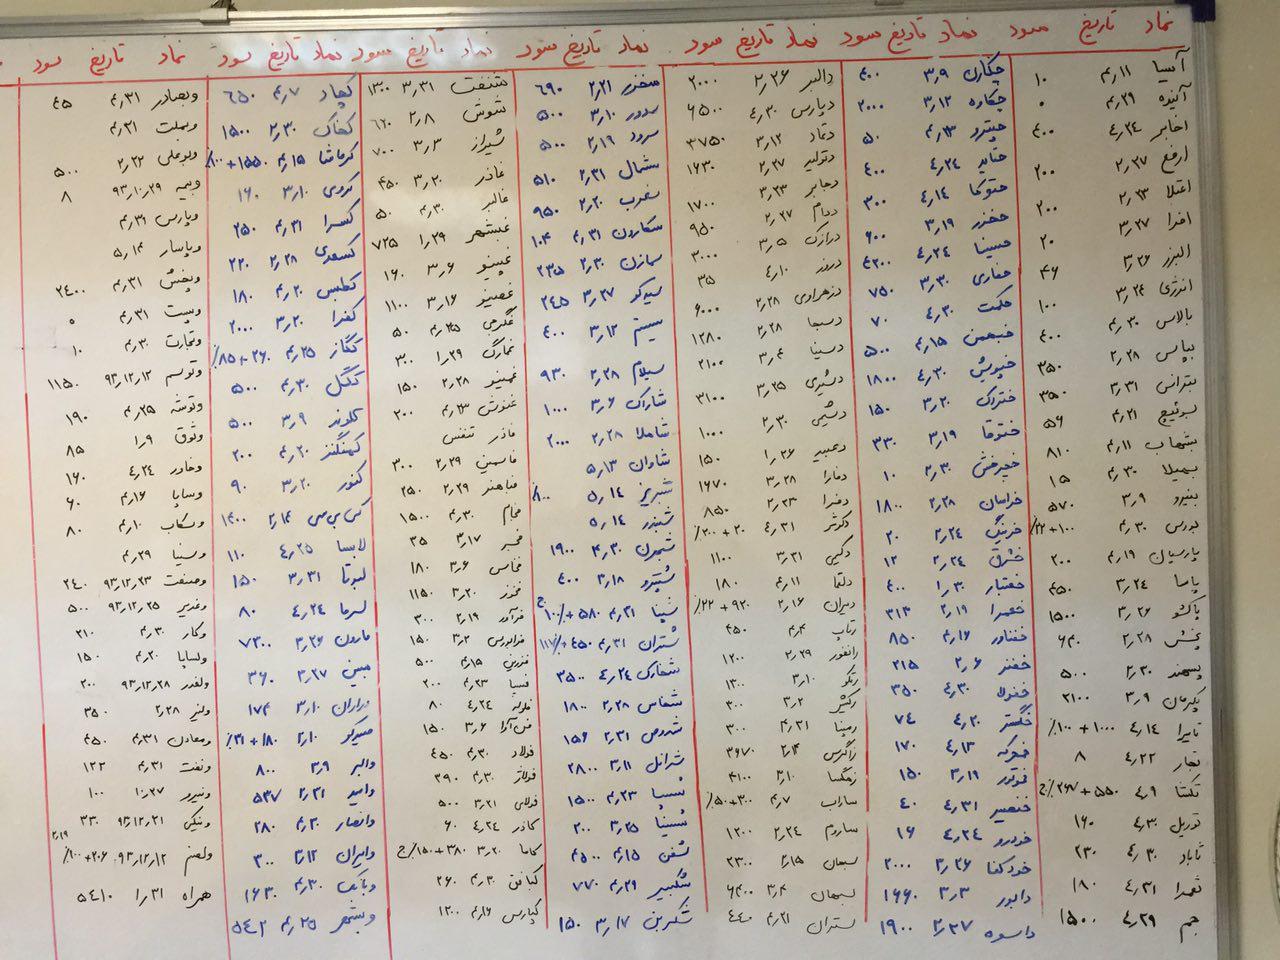 نماد تاریخ سود
آسیا ۴٫۱۱ ۱۰
آینده ۴٫۲۹ ۰
اخابر ۴٫۲۴ ۴۰۰
ارفع ۲٫۲۷ ۲۰۰
اعتلا ۲٫۲۳ ۲۰۰
افرا ۳٫۲۷ ۲۰
البرز ۳٫۲۶ ۴۶
انرژی ۳٫۲۴ ۱۰۰
بالاس ۴٫۳۰ ۴۰۰
بپاس ۲٫۲۸ ۳۵۰
بترانس ۳٫۳۱ ۳۵۰
بسوئیچ ۴٫۲۱ ۵۶
بشهاب ۴٫۱۱ ۸۱۰
بهیلا ۴٫۳۰ ۱۵
بنیرو ۳٫۹ ۵۷۰
بورس ۴٫۳۰
پارسیان ۴٫۱۹ ۲۰۰
پاسا ۳٫۲۴ ۴۵۰
پاکشو ۳٫۲۶ ۱۵۰۰
پخش ۲٫۲۸ ۶۳۰
پسهند ۲٫۳۰ ۵۰۰
پکرمان ۳٫۹ ۲۱۰۰
تایرا ۴٫۱۴ ۱۰۰۰+۱۰۰٪
تجار ۴٫۲۲ ۸
تکشا ۴٫۹
توریل ۴٫۳۰ ۱۶۰
ثاباد ۴٫۳۰ ۲۳۰
ثعمرا ۴٫۳۱ ۱۸۰
جم ۴٫۲۹ ۱۵۰۰
نماد تاریخ سود
چکارن ۳٫۹ ۴۰۰
چکاوه ۳٫۱۲ ۲۰۰۰
حپترو ۴٫۲۳ ۵۰
حتاید ۴٫۲۴ ۴۰۰
حتوکا ۴٫۱۴ ۳۰۰
حخزر ۳٫۱۹ ۶۰۰
حسینا ۴٫۲۴ ۴۲۰۰
حفاری ۳٫۳۰ ۷۵۰
حکمت ۴٫۳۰ ۷۰
خبهمن ۴٫۱۵ ۵۰۰
خپویش ۴٫۳۰ ۱۸۰۰
ختراک ۳٫۲۰ ۱۵۰
ختوقا ۳٫۱۹ ۳۳۰
خچرخش ۲٫۳۰ ۱۰
خراسان ۲٫۲۸ ۱۸۰۰
خرینگ ۲٫۲۴ ۲۰
خشرق ۲٫۲۴ ۱۲
خفنار ۱٫۳۰ ۴۰۰
خعمرا ۲٫۱۹ ۳۱۳
خفناور ۴٫۱۶ ۸۵۰
خفنر ۲٫۶ ۲۱۵
خفولا ۴٫۳۰ ۳۵۰
خگستر ۴٫۲۰ ۷۴
خموتور ۳٫۱۹ ۱۵۰
خنصیر ۴٫۳۱ ۴۰
خودرو ۴٫۲۴ ۱۶
خودکفا ۳٫۲۶ ۲۰۰۰
دابور ۳٫۳ ۱۶۶۰
داسوه ۲٫۲۷ ۱۹۰۰
نماد تاریخ سود
دالبر ۲٫۲۶ ۲۰۰۰
دپارس ۴٫۳۰ ۶۵۰۰
دتماد ۳٫۱۲ ۳۷۵۰
دتولید ۲٫۲۷ ۱۶۳۰
دجابر ۲٫۲۳ ۱۷۰۰
ددام ۲٫۲۷ ۹۵۰
درازک ۳٫۵ ۳۰۰۰
دروز ۴٫۱۰ ۳۵
دزهراوی ۲٫۲۸ ۶۰۰۰
دسبحا ۲٫۲۸ ۱۲۸۰
دسینا ۳٫۴ ۲۱۰۰
دشیری ۳٫۲۵ ۳۱۰۰
دشیمی ۲٫۳۰ ۱۰۰۰
دعبید ۱٫۲۶ ۱۵۰
دفارا ۳٫۲۸ ۱۶۷۰
دفرا ۲٫۲۳ ۸۵۰
دکوثر ۴٫۳۱ ۲۰+۲۰۰٪
دکیمی ۳٫۳۱ ۱۱۰۰
دلقما ۴٫۱۱ ۱۸۰
دیران ۲٫۱۶ ۹۲۰+۲۲٪
رتاپ ۴٫۴ ۴۵۰
رانفور ۲٫۲۹ ۱۲۰۰
رتکو ۳٫۱۰ ۱۳۰۰
رکیش ۳٫۲ ۳۰۰
رمپنا ۴٫۲۱ ۳۰۰
زاگرس ۲٫۴ ۳۶۷۰
زمگسا ۳٫۱۰ ۴۱۰۰
ساراب ۴٫۷ ۳۰۰+۵۰٪
ساروم ۲٫۲۴ ۱۲۰۰
سبحان ۲٫۱۵ ۲۳۰۰
سبهان ۳٫۴ ۶۴۰۰
ستران ۴٫۲۱ ۴۴۰
نماد تاریخ سود
سخزر ۲٫۲۱ ۶۹۰
سدور ۳٫۱۰ ۵۰۰
سرود ۲٫۱۹ ۵۰۰
سشمال ۲٫۳۱ ۵۱۰
سغرب ۲٫۲۰ ۹۵۰
سکارون ۴٫۳۱ ۱۰۴
سمازن ۲٫۳۰ ۲۳۵
سیدکو ۳٫۲۷ ۲۴۵
سیتم ۳٫۱۲ ۴۰۰
سیلام ۲٫۲۸ ۹۳۰
شاراک ۳٫۶ ۱۰۰۰
شاملا ۲٫۲۸ ۲۰۰۰
شاوان ۵٫۱۳
شبریز ۵٫۱۴
شبندر ۵٫۱۴
شبهرن ۴٫۳۰ ۱۹۰۰
شپترو ۳٫۱۸ ۴۰۰
شپنا ۴٫۳۱
شتران ۴٫۳۱
شخارک ۴٫۲۴ ۳۵۰۰
شفاس ۲٫۲۸ ۱۸۰۰
شدوص ۲٫۳۱ ۱۵۶
شرانل ۳٫۱۱ ۲۸۰۰
شسپا ۴٫۲۳ ۱۵۰۰
شسینا ۳٫۲۵ ۲۰۰
شفن ۴٫۱۵ ۴۵۰۰
شکبیر ۴٫۲۹ ۷۷۰
شکربن ۳٫۱۷ ۱۵۰
نماد تاریخ سود
شنفت ۳٫۳۱ ۱۳۰۰
شوش ۲٫۸ ۶۲۰
شیراز ۳٫۳ ۷۰۰
غاذر ۳٫۲۰ ۴۵۰
غالبر ۴٫۳۰ ۵۰
غبشهر ۱٫۲۹ ۷۲۵
غپینو ۳٫۶ ۱۶۰
غصینو ۳٫۱۶ ۱۱۰۰
غگرجی ۴٫۲۵ ۵۰
غمارگ ۱٫۲۹ ۳۰۰
غمینو ۲٫۲۸ ۱۵۰
غنوش ۴٫۲۳ ۲۰۰
فاذر تنفس
فاسمین ۲٫۲۹ ۳۰۰
فباهنر ۲٫۲۹ ۲۵۰
فجام ۴٫۳۰ ۱۵۰۰
فجر ۳٫۱۷ ۳۵
فخاس ۳٫۶ ۱۸۰
فخوز ۳٫۲۰ ۱۱۵۰
فرآور ۲٫۱۹ ۳۰۰
فرابورس ۲٫۲ ۱۵۰
فنرژی ۴٫۱۵ ۵۰۰
فسپا ۴٫۲۳ ۲۰۰
فلوله ۴٫۲۴ ۸۰
فن‌آوا ۳٫۶ ۱۵۰
فولاد ۴٫۳۰ ۴۵۰
فولاژ ۴٫۳۰ ۲۹۰
فولای ۳٫۲۱ ۵۰۰
کاذر ۴٫۲۴ ۶۰
کاما ۳٫۲۰
کبافق ۴٫۳۰ ۲۶۰
کپارس ۴٫۱۶ ۱۲۰۰
نماد تاریخ سود
کچاد ۴٫۷ ۶۵۰
کخاک ۲٫۳۰ ۱۵۰۰
کرماشا ۴٫۱۵
کروی ۳٫۱۰ ۱۶۰
کسرا ۴٫۳۱ ۲۵۰
کسعدی ۲٫۲۸ ۲۲۰
کطبس ۴٫۲۰ ۱۸۰
کفرا ۳٫۲۰ ۲۰۰۰
کگاز ۴٫۲۵ ۲۶۰+۸۵٪
کگل ۴٫۳۰ ۵۰۰
کلوند ۳٫۹ ۵۰۰
کمنگنز ۴٫۲۰ ۲۰۰
کنور ۳٫۲۰ ۹۰
کی بی سی ۲٫۴ ۱۴۰۰
لابسا ۴٫۲۵ ۱۱۰
لبوتا ۳٫۳۱ ۱۵۰
لسرما ۴٫۲۴ ۸۰
مارون ۳٫۲۶ ۷۲۰۰
مبین ۳٫۲۷ ۳۶۰
وباران ۳٫۱۰ ۱۷۴
میدکو ۲٫۱۰ ۱۸۰+۳۱٪
والبر ۳٫۹ ۸۰۰
وامید ۲٫۳۱ ۵۳۷
وانصار ۴٫۲۰ ۲۸۰
وایران ۳٫۱۲ ۳۰۰
وبانک ۴٫۳۰ ۱۶۳۰
وبشهر ۴٫۲۵ ۵۴۲
نماد تاریخ سود
وبصادر ۴٫۳۱ ۴۵
وبملت ۴٫۳۱
وبوعلی ۲٫۲۲ ۵۰۰
وبیمه ۹۳٫۱۰٫۲۹ ۸
وپارس ۴٫۳۱
وپاسار ۵٫۱۴
وپخش ۴٫۳۱ ۲۴۰۰
وپست ۴٫۳۱ ۰
وتجارت ۴٫۳۰ ۱۰
وتوسم ۹۳٫۱۲٫۱۲ ۱۱۵۰
وتوشه ۴٫۲۵ ۱۹۰
وثوق ۱٫۹ ۸۵
وخاور ۴٫۲۴ ۱۶۰
وساپا ۴٫۱۶ ۶۰
وسکاب ۴٫۱۰ ۸۰
وسینا ۴٫۲۹
وصنعت ۹۳٫۱۲٫۲۳ ۲۴۰
وغدیر ۹۳٫۱۲٫۲۵ ۵۰۰
وکار ۴٫۳۰ ۲۱۰
ولساپا ۴٫۲۰ ۱۵۰
ولغدر ۹۳٫۱۲٫۲۸ ۲۰۰
ولیز ۲٫۲۸ ۳۵۰
ومعادن ۴٫۳۱ ۴۵۰
ونفت ۴٫۳۱ ۱۲۲
ونیرو ۱۰٫۲۷ ۱۰۰
ونیکی ۹۳٫۱۲٫۲۱ ۳۳۰
ولصنم ۹۳٫۱۲٫۱۲ ۲۰۶+۱۰۰٪
همراه ۱٫۳۱ ۵۴۱۰